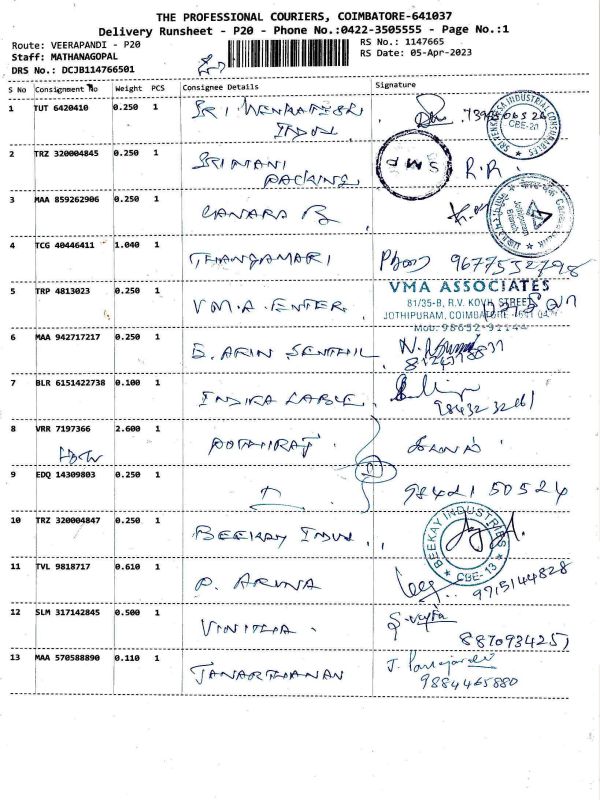 THE PROFESSIONAL COURIERS, COIMBATORE-641037
Delivery Runsheet - P20 - Phone No.:0422-3505555 - Page No.:1
Route: VEERAPANDI - P20
RS No.: 1147665
Staff: MATHANAGOPAL
RS Date: 05-Apr-2023
DRS No.: DCJB114766501
S No Consignment No Weight PCS Consignee Details Signature
1 TUT 6420410 0.250 1 SRI VENKATESRI
INDU.
SRI VENKATESA INDUSTRIAL CONSUMABLES
CBE-20
2 TRZ 320004845 0.250 1 SRIMANI R.R.
PACKING
SMP
3 MAA 859262906 0.250 1 CANARA B
Jothipuram
Branch
4 TCG 40446411 1.040 1 THANGAMARI 9677532798
5 TRP 4813023 0.250 1 V.M.A. ENTER.
VMA ASSOCIATES
81/35-B, R.V. KOVIL STREET
JOTHIPURAM, COIMBATORE-641 047
Mob: 98652-91144
6 MAA 942717217 0.250 1 B. ARIN SENTHIL
7 BLR 6151422738 0.100 1 INDIRA LABLE.
8 VRR 7197366 2.600 1 POTHIRAJ
9 EDQ 14309803 0.250 1 98421 50524
10 TRZ 320004847 0.250 1 BEEKAY INDU.
BEEKAY INDUSTRIES
CBE-13
11 TVL 9818717 0.610 1 P. ARUNA 9715144828
12 SLM 317142845 0.500 1 VINITHA
8870934257
13 MAA 570588890 0.110 1 JANARTHANAN
9884465880